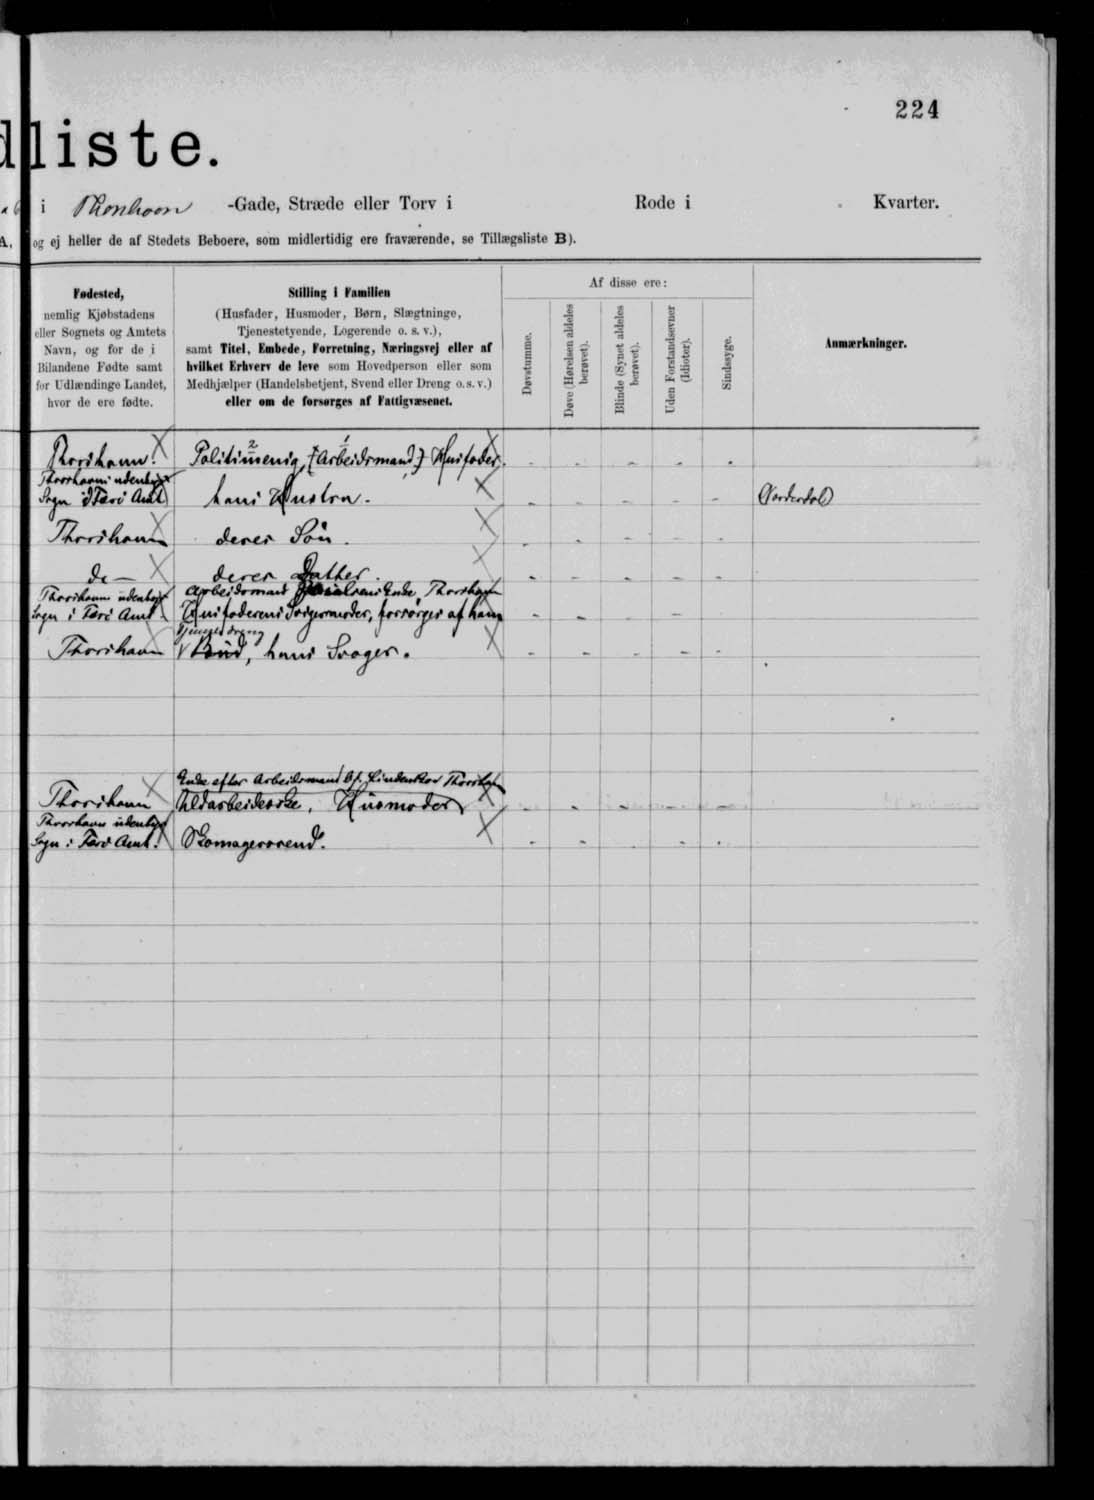 224
dliste.
i Thorshavn -Gade, Stræde eller Torv i Rode i Kvarter.
A, og ej heller de af Stedets Beboere, som midlertidig ere fraværende, se Tillægsliste B).
Fødested,
nemlig Kjøbstadens
eller Sognets og Amtets
Navn, og for de i
Bilandene Fødte samt
for Udlændinge Landet,
hvor de ere fødte.
Stilling i Familien
(Husfader, Husmoder, Børn, Slægtninge,
Tjenestetyende, Logerende o. s. v.),
samt Titel, Embede, Forretning, Næringsvej eller af
hvilket Erhverv de leve som Hovedperson eller som
Medhjælper (Handelsbetjent, Svend eller Dreng o. s. v.)
eller om de forsørges af Fattigvæsenet.
Af disse ere:
Døvstumme.
Døve (Hørelsen aldeles
berøvet).
Blinde (Synet aldeles
berøvet).
Uden Forstandsevner
(Idioter).
Sindssyge.
Anmærkninger.
Thorshavn. Politimenig, [Arbeidsmand] Husfader. - - - - -
Thorshavns udenbys
Sogn i Færø Amt hans Hustru. - - - - - (Norderdal)
Thorshavn deres Søn. - - - - -
do - deres Datter. - - - - -
Thorshavns udenbys Arbeidsmand Enke, Thorshavn
Sogn i Færø Amt. Husfaderens Svigermoder, forsørges af ham - - - -
Tjenestedreng
Thorshavn Bud, hans Svoger. - - - - -
Enke efter Arbeidsmand Thorshavn
Thorshavn Uldarbeiderske, Husmoder - - - - -
Thorshavns udenbys
Sogn i Færø Amt. Skomagersvend. - - - -